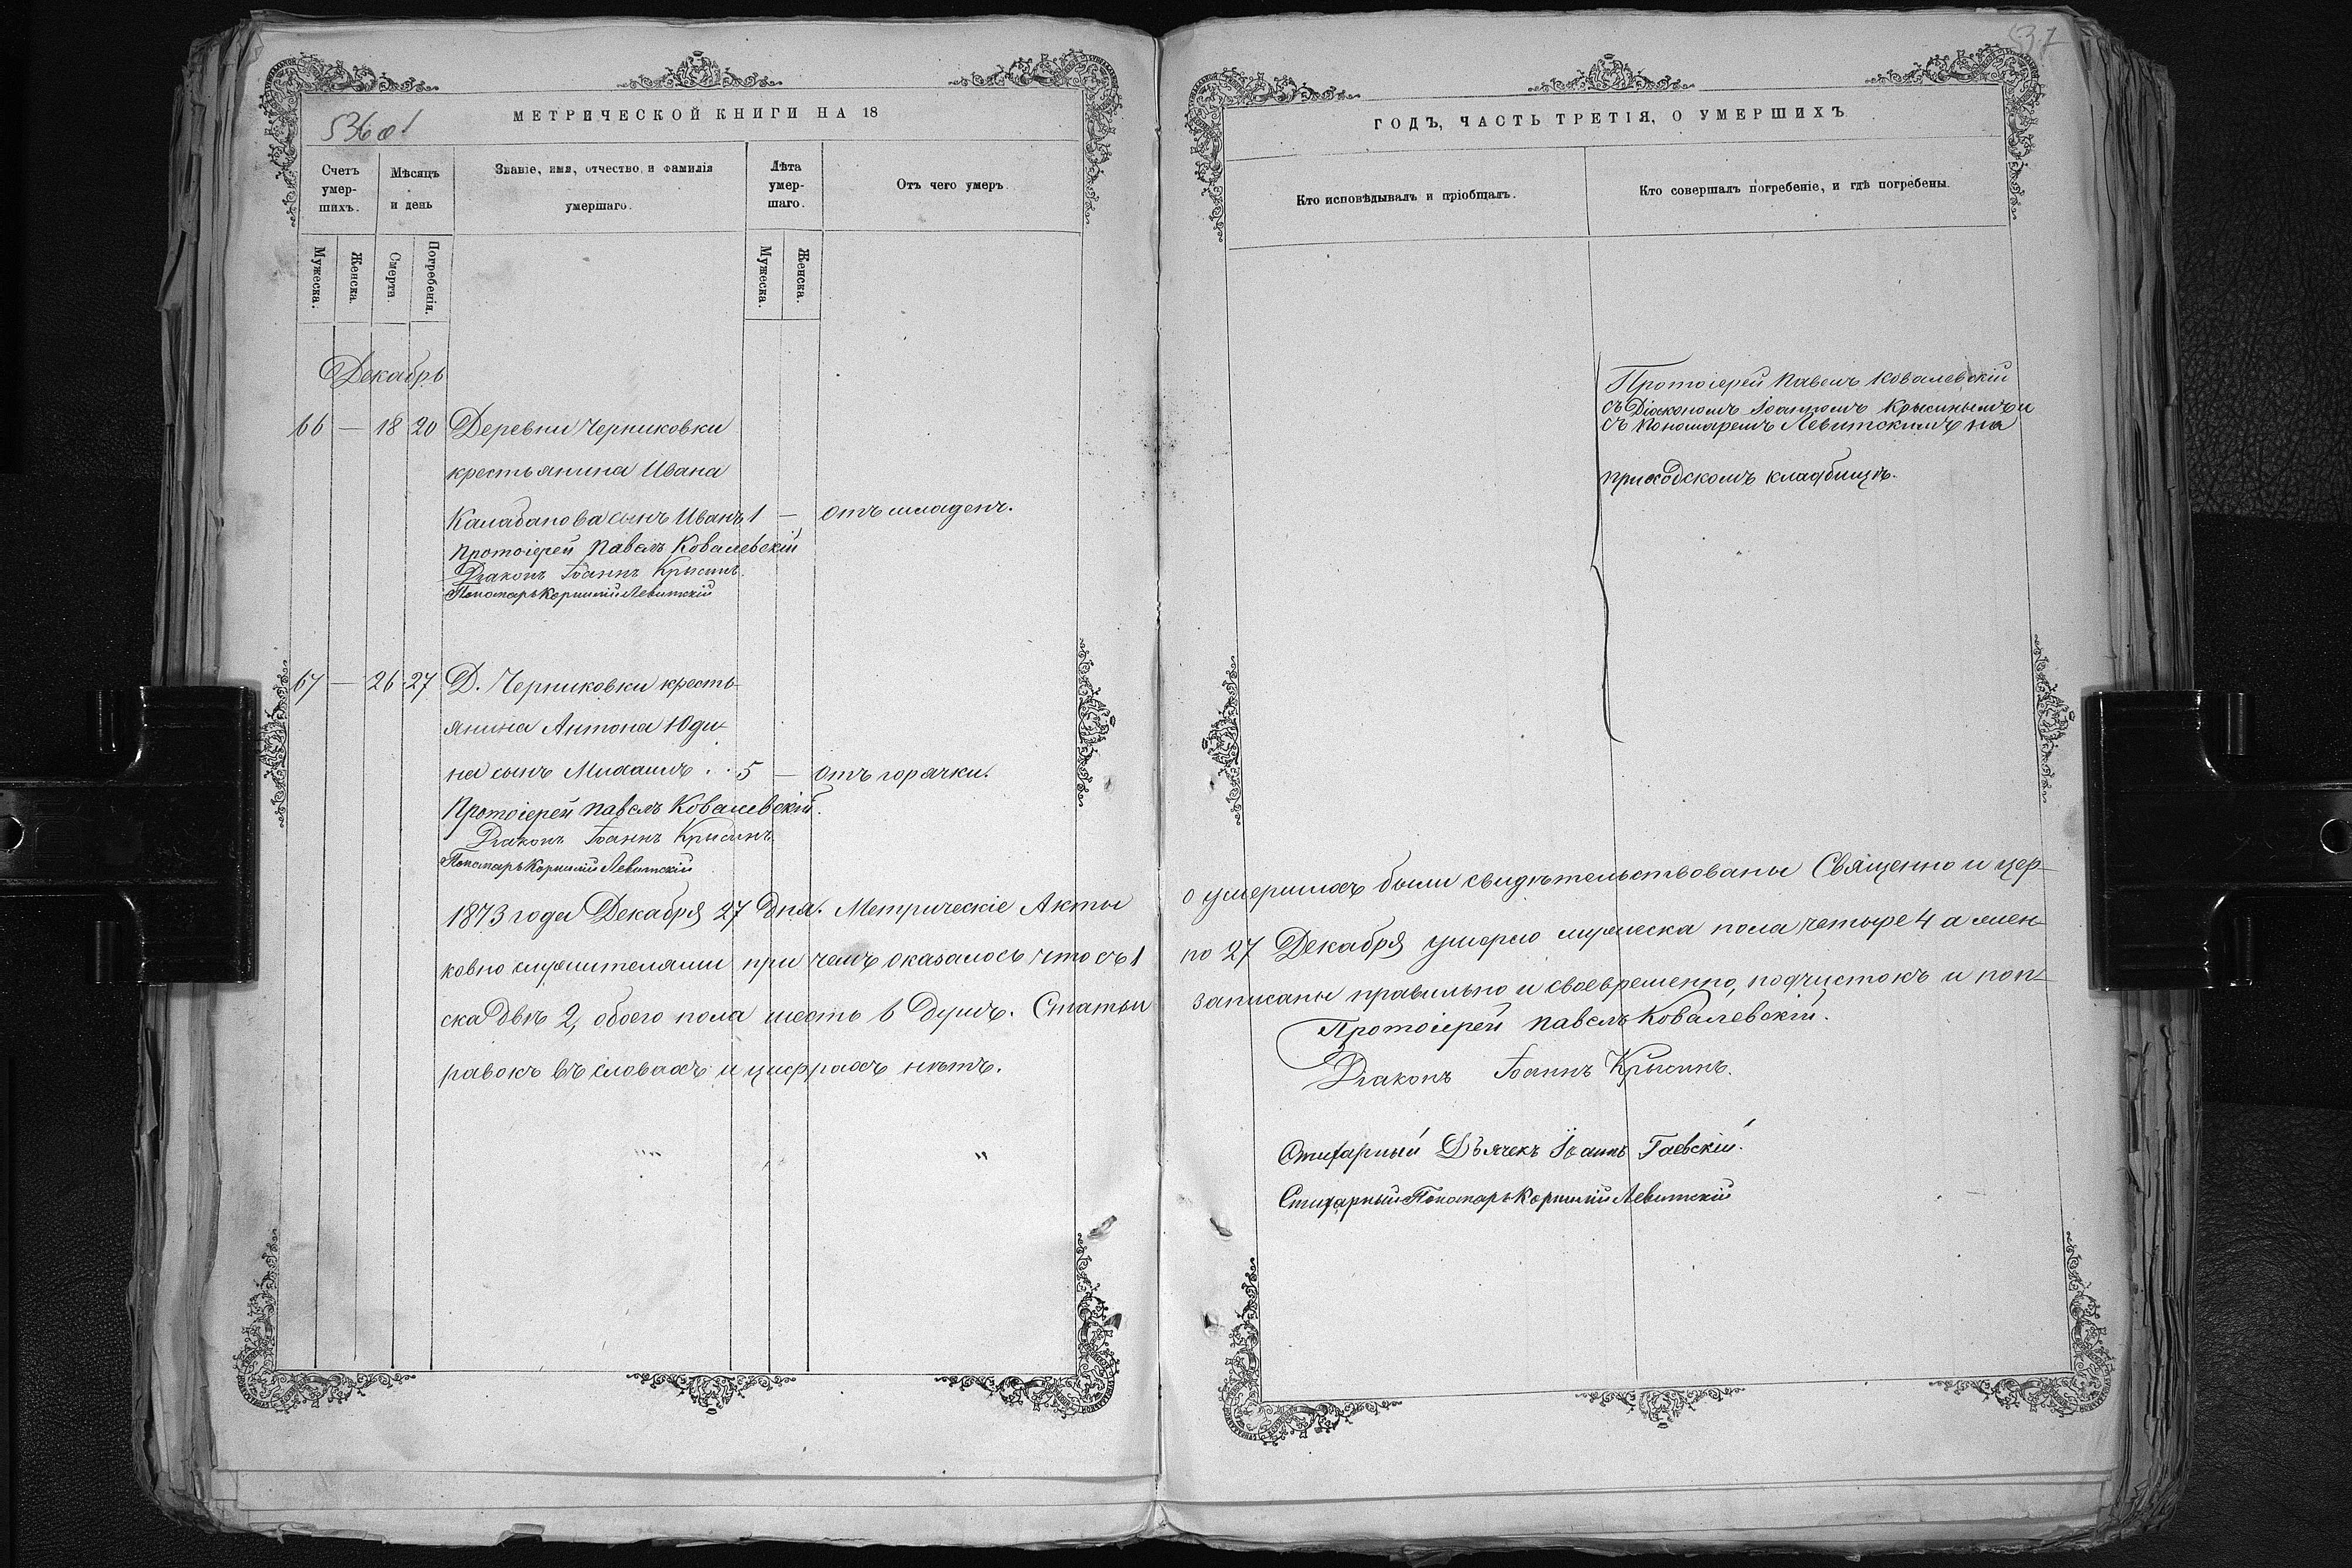 МЕТРИЧЕСКОЙ КНИГИ НА 18
536 об
Счетъ умер- шихъ.
Мѣсяцъ и день
Званіе, имя, отчество и фамилія умершаго.
Лѣта умер- шаго.
Отъ чего умеръ.
Мужеска.
Женска.
Смерти.
Погребенія.
Мужеска.
Женска.
Декабрь
66 — 18 20 Деревни Черниковки
крестьянина Ивана
Калабанова сынъ Иванъ 1 — отъ младен.
Протоіерей Павелъ Ковалевскій
Діаконъ Іоаннъ Крысинъ.
Пономарь Корнилій Левитскій
67 — 26 27 Д. Черниковки кресть-
янина Антона Юди-
на сынъ Михаилъ . . 5 — отъ горячки.
Протоіерей Павелъ Ковалевскій.
Діаконъ Іоаннъ Крысинъ.
Пономарь Корнилій Левитскій
1873 года Декабря 27 дня. Метрическіе Акты
ковно служителями при чемъ оказалось что съ 1
ска двѣ 2, обоего пола шесть 6 душъ. Статьи
равокъ въ словахъ и цифрахъ нѣтъ.
537
ГОДЪ, ЧАСТЬ ТРЕТІЯ, О УМЕРШИХЪ
Кто исповѣдывалъ и пріобщалъ.
Кто совершалъ погребеніе, и гдѣ погребены.
Протоіерей Павелъ Ковалевскій
съ Діакономъ Іоанномъ Крысинымъ и
съ Пономаремъ Левитскимъ на
приходскомъ кладбищѣ.
о умершихъ были свидѣтельствованы Священно и цер-
по 27 Декабря умерло мужеска пола четыре 4 а жен-
записаны правильно и своевременно, подчистокъ и поп-
Протоіерей Павелъ Ковалевскій.
Діаконъ Іоаннъ Крысинъ.
Стихарный Дьячекъ Іоаннъ Гаевскій.
Стихарный Пономарь Корнилій Левитскій